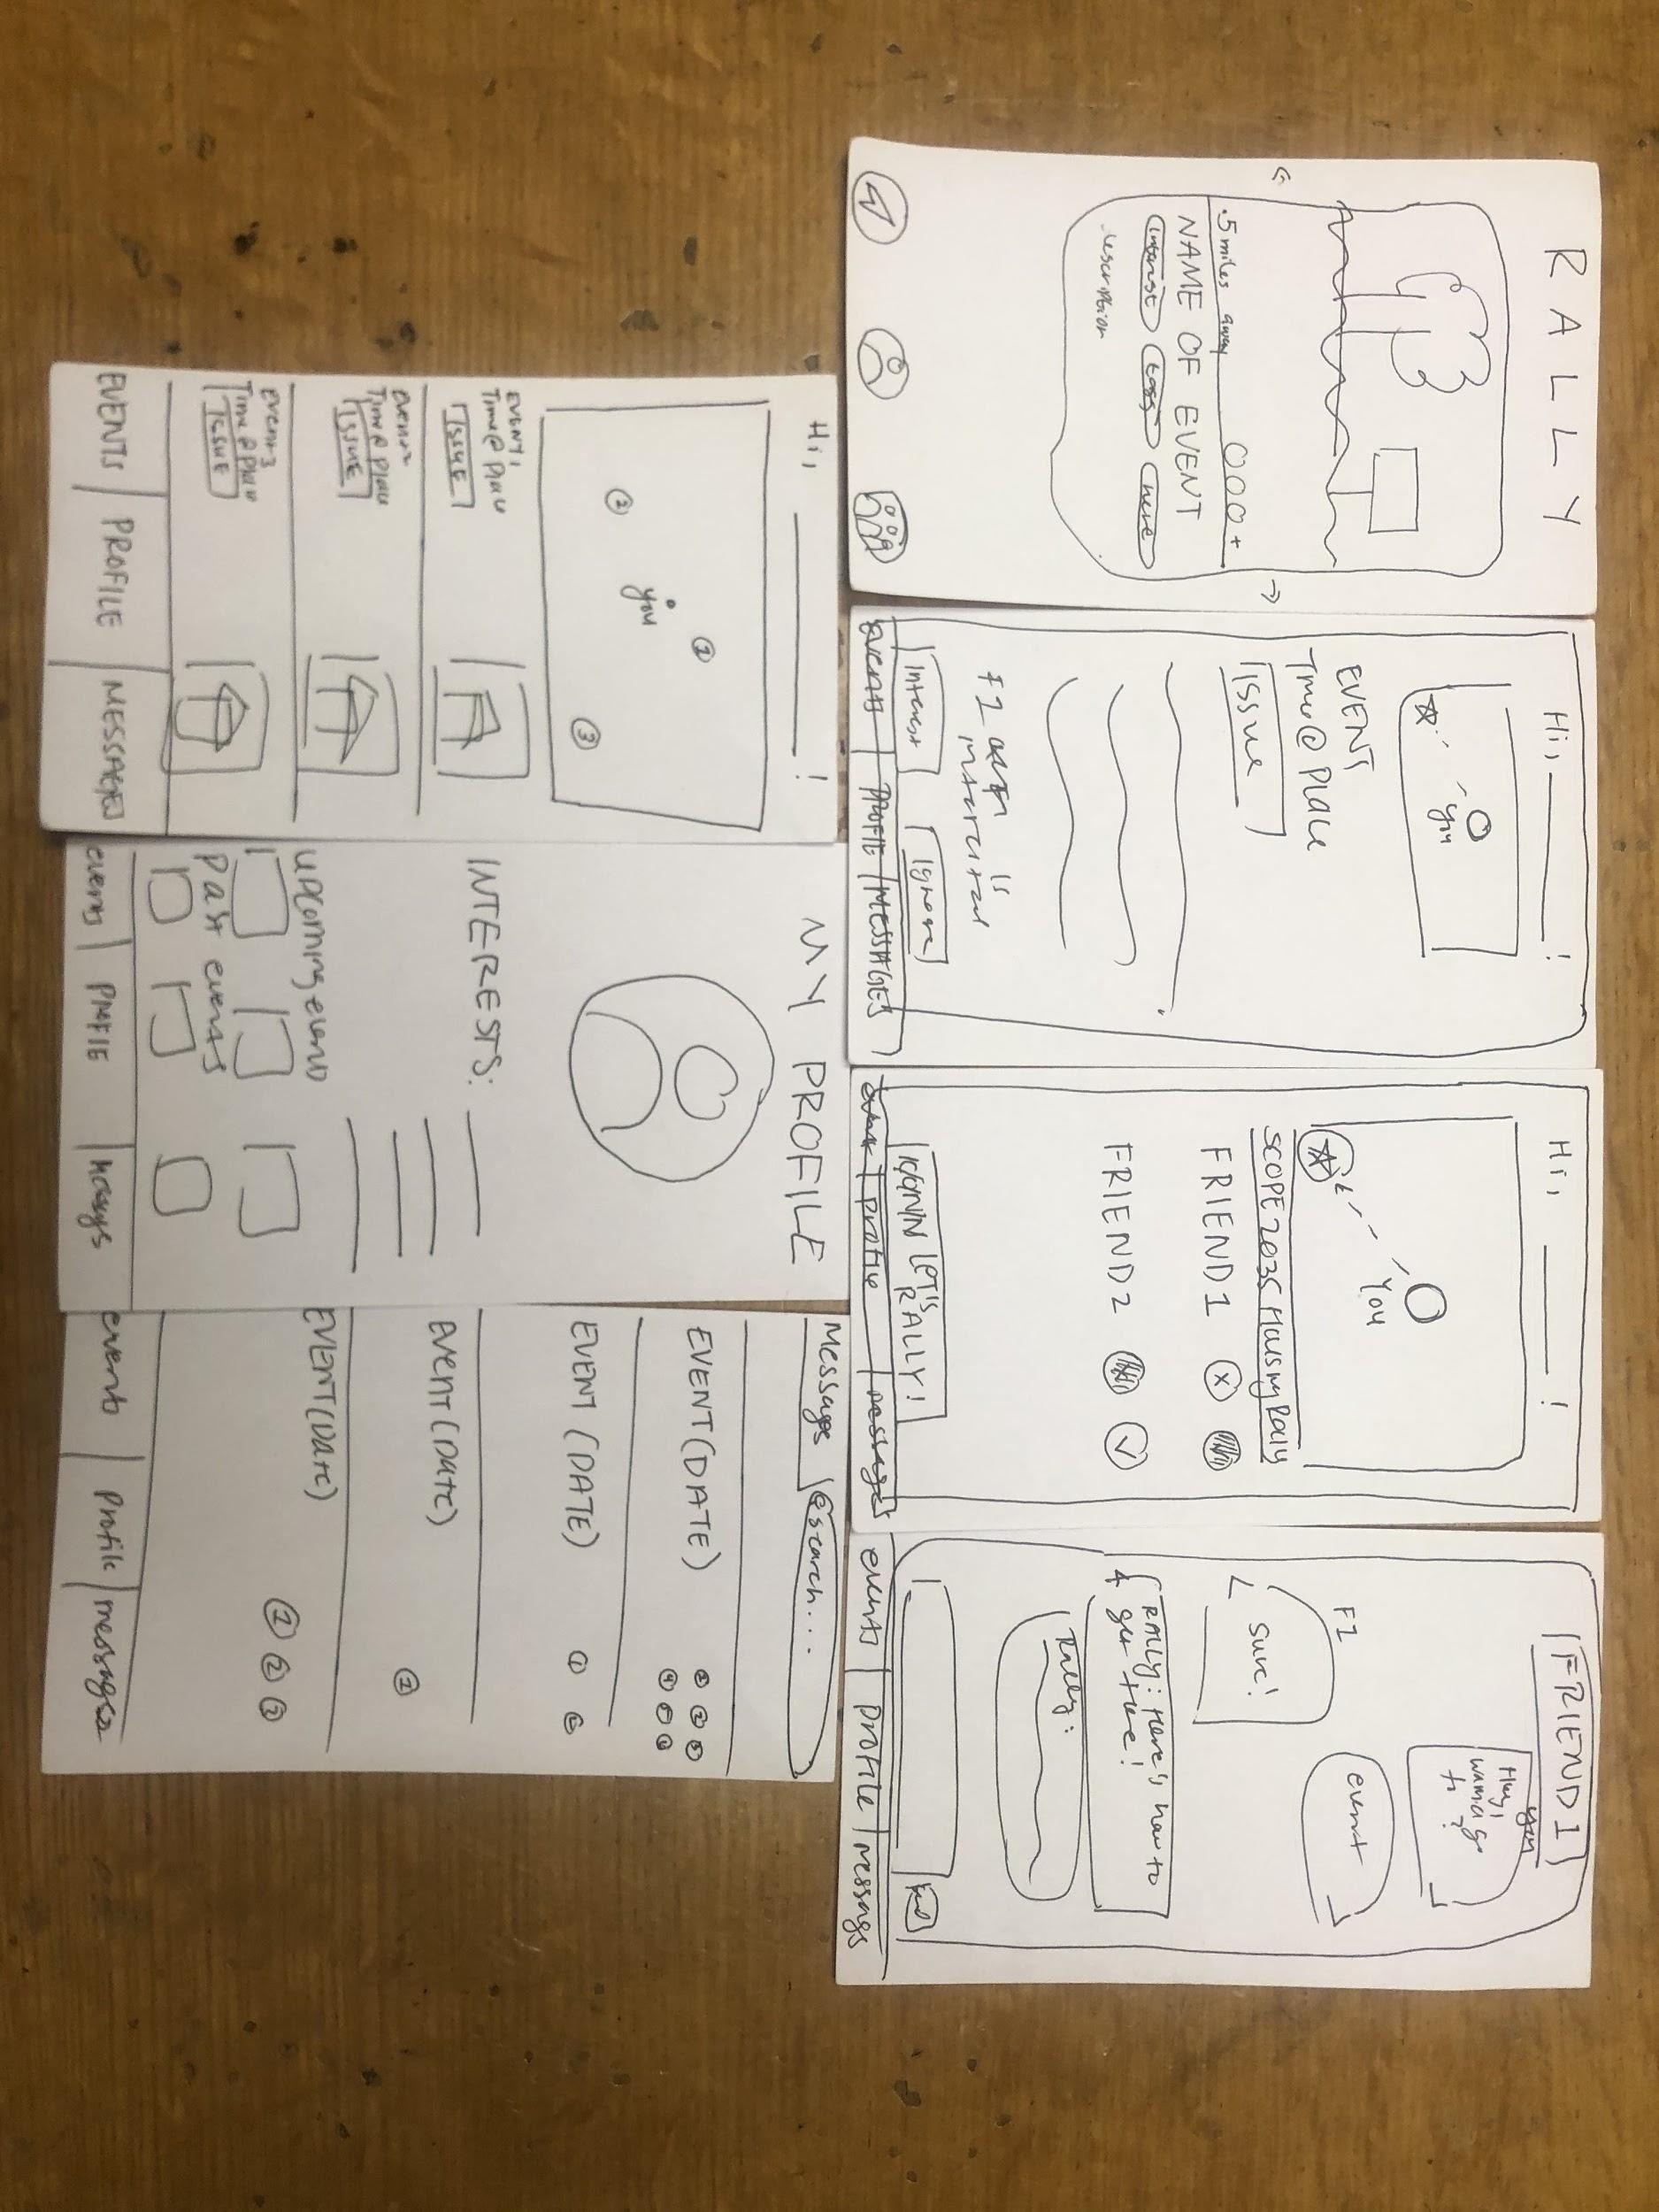 RALLY
.5 miles away
+
NAME OF EVENT
interest
tags
here
description
Hi, !
you
EVENT
Time @ Place
ISSUE
F1 is
interested
Interest
Ignore
events PROFILE MESSAGES
Hi, !
You
FRIEND 1
X
FRIEND 2
LET'S
RALLY!
profile
messages
FRIEND 1
you
Hey,
wanna go
to ?
event
F1
Sure!
RALLY: Here's how to
get there!
Rally:
events profile messages
Hi, !
1
2
you
3
EVENT 1
Time @ Place
ISSUE
event 2
Time @ Place
ISSUE
event 3
Time @ Place
ISSUE
EVENTS PROFILE MESSAGES
MY PROFILE
INTERESTS:
upcoming events
Past events
events PROFILE
Messages
search...
EVENT (DATE)
EVENT (DATE)
1
EVENT (DATE)
1
EVENT (Date)
1 2 3
events Profile messages